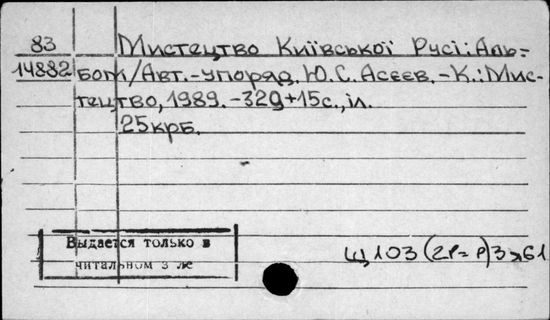 83 Мистецтво Київської Русі: Аль-
14882 бом/Авт.-упоряд. Ю.С. Асєєв. -К.: Мис-
тецтво, 1989. -329+15с., іл.
25крб.
Выдается только в
читальном з ле
Щ103(2Р=Р)3я61